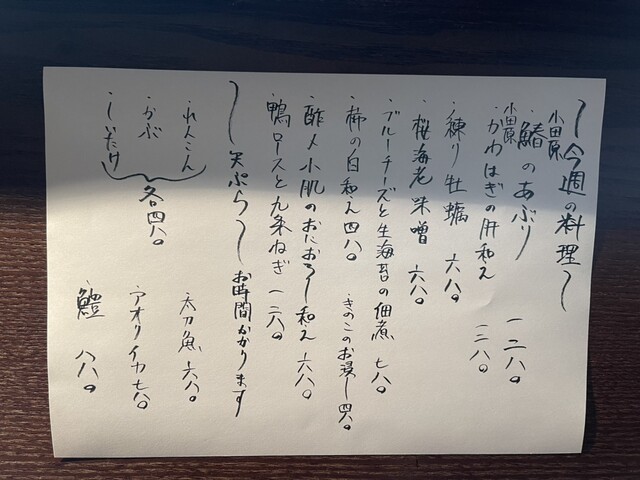 〜今週の料理〜
小田原 鰆のあぶり 一二八〇
小田原 かわはぎの肝和え 一二八〇
・練り牡蠣 六八〇
・桜海老味噌 六八〇
・ブルーチーズと生海苔の佃煮 七八〇
・柿の白和え 四八〇 ・きのこのお浸し 四八〇
・酢〆小肌のおにおろし和え 六八〇
・鴨ロースと九条ねぎ 一二八〇
〜天ぷら〜 お時間かかります
・れんこん
・かぶ
・しいたけ
各四八〇
・太刀魚 六八〇
・アオリイカ 七八〇
・鱧 八八〇